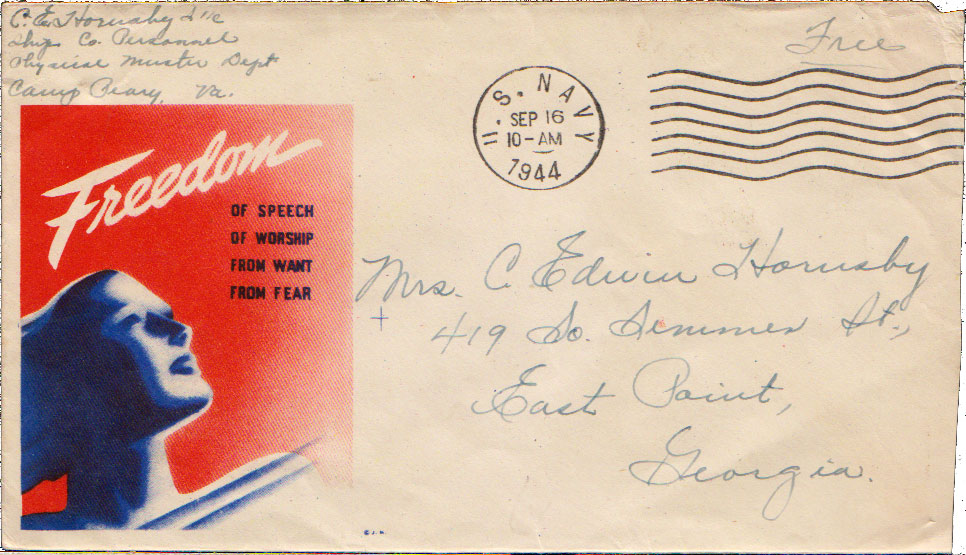 C. E. Hornsby S 2/c
Ship's Co. Personnel
Physical Muster Dept
Camp Peary, Va.
Free
U.S. NAVY
SEP 16
10-AM
1944
Freedom
OF SPEECH
OF WORSHIP
FROM WANT
FROM FEAR
Mrs. C. Edwin Hornsby
419 So. Semmes St.,
East Point,
Georgia.